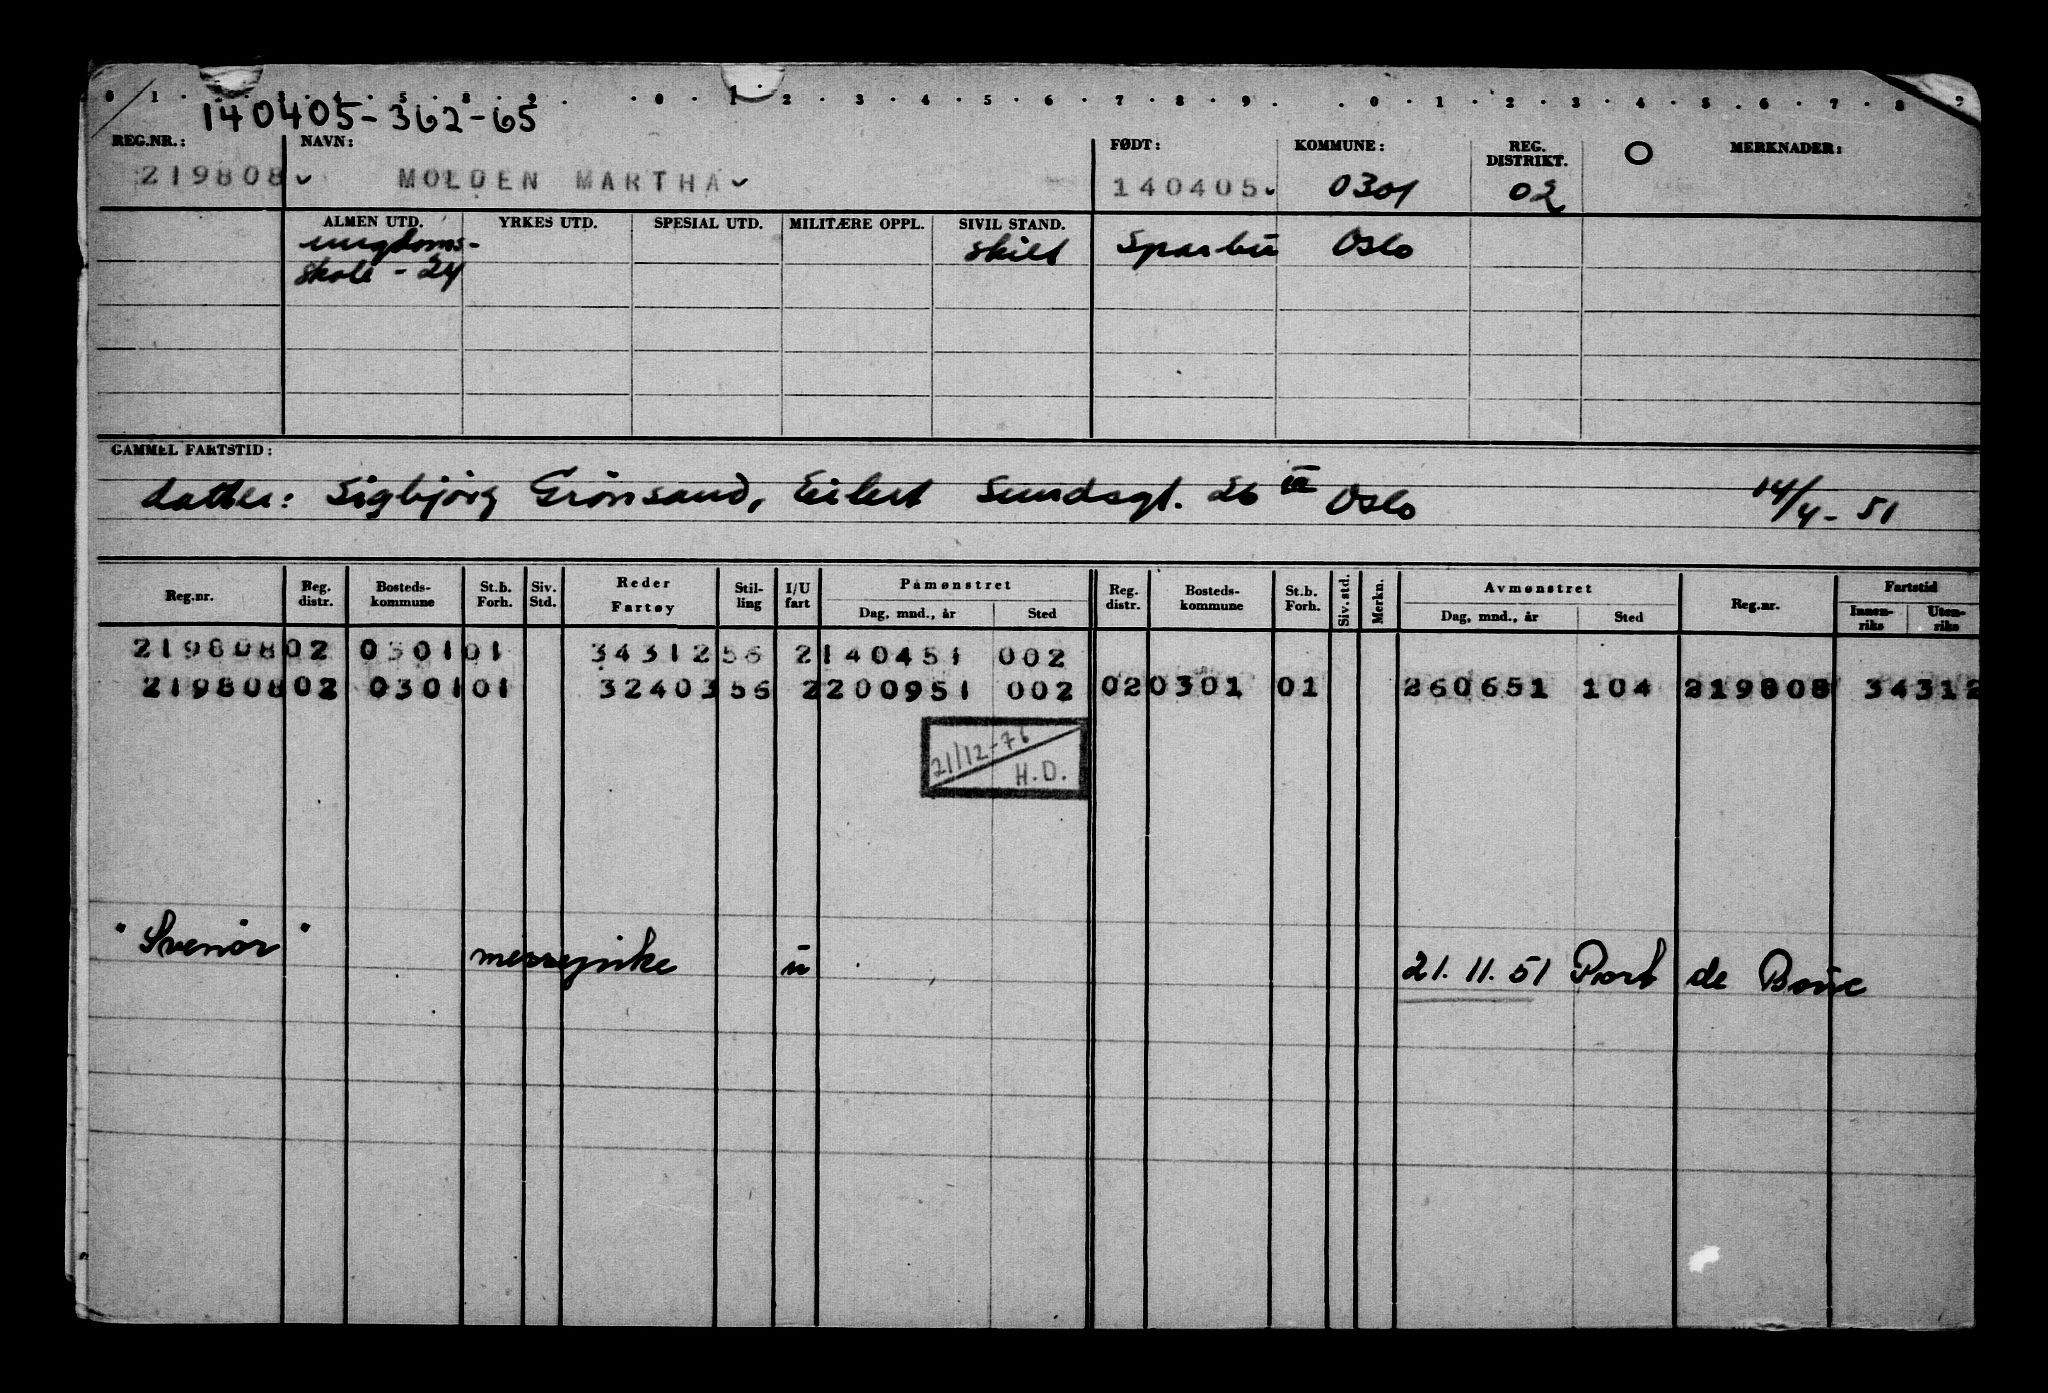 0 1 . . . 4 . 5 . 8 . 9 . . 0 . 1 . 2 . 3 . 4 . 5 . 6 . 7 . 8 . 9 . . 0 . 1 . 2 . 3 . 4 . 5 . 6 . 7 . 8 . 9
140405-362-65
REG.NR.: NAVN: FØDT: KOMMUNE: REG. DISTRIKT. O MERKNADER:
219808 MOLDEN MARTHA 140405 0301 02
ALMEN UTD. YRKES UTD. SPESIAL UTD. MILITÆRE OPPL. SIVIL STAND.
ungdoms- skilt Sparbu Oslo
skole - 24
GAMMEL FARTSTID:
datter: Sigbjörg Grönsand, Eilert Sundsgt. 26 III Oslo 14/4-51
Reg.nr. Reg. distr. Bosteds-kommune St.b. Forh. Siv. Std. Reder Fartøy Stil-ling I/U fart Påmønstret Reg. distr. Bosteds-kommune St.b. Forh. Siv. std. Merkn. Avmønstret Reg.nr. Fartstid
Dag, mnd., år Sted Dag, mnd., år Sted Innen-riks Uten-riks
219808 02 0301 01 34312 56 2 140451 002
219808 02 0301 01 32403 56 2 200951 002 02 0301 01 260651 104 219808 34312
21/12-76
H.D.
"Svenör" messepike u 21.11.51 Port de Bouc